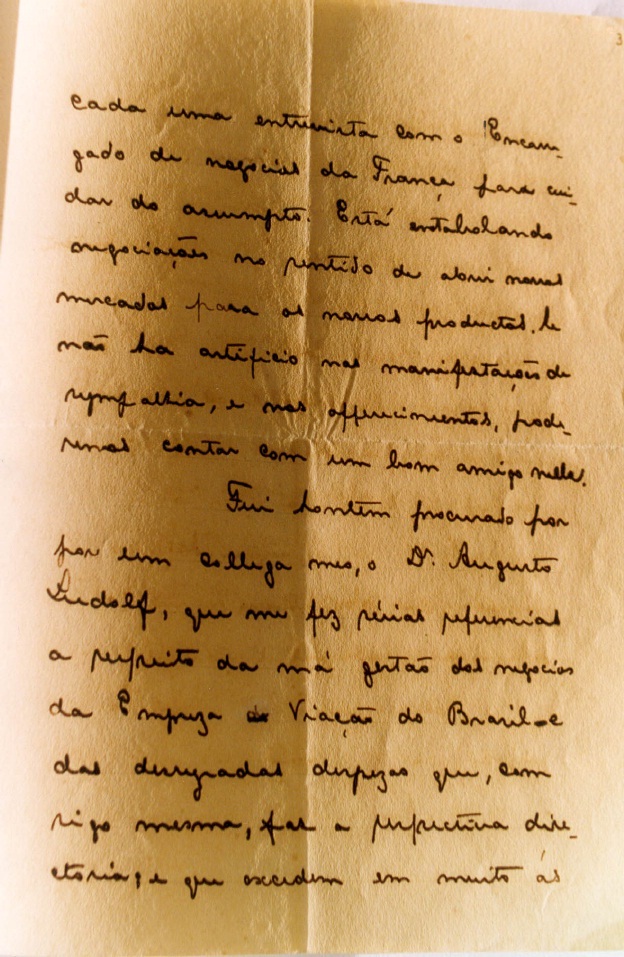 3
cada uma entrevista com o Encarre-
gado de negocios da França para cui-
dar do assumpto. Está entabolando
negociações no sentido de abrir novos
mercados para os nossos productos. Se
não ha artificio nas manifestações de
sympathia, e nos offerecimentos, pode-
remos contar com um bom amigo nelle.
Fui hontem procurado por
por um collega meo, o Dr. Augusto
Ludolf, que me fez sérias referencias
a respeito da má gestão dos negocios
da Empreza de Viação do Brazil - e
das desregradas despezas que, com
sigo mesma, faz a respectiva dire-
ctoria; e que excedem em muito ás